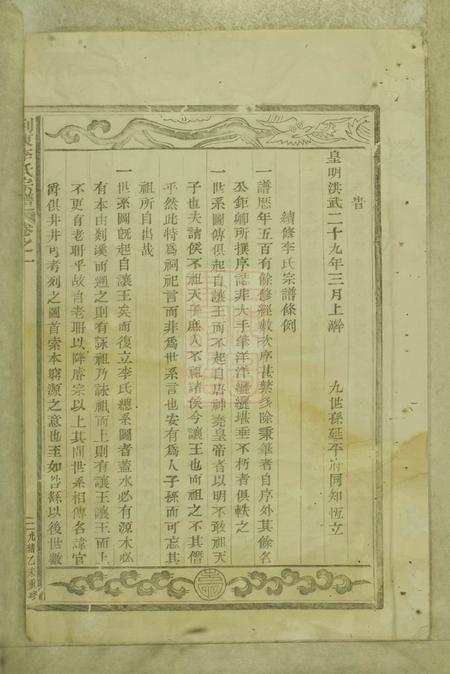 旹
皇明洪武二十九年三月上澣　九世孫延平府同知恆立
續修李氏宗譜條例
一譜歷年五百有餘修經數次序甚繁多除秉筆者自序外其餘名
公鉅卿所撰序誌非大手筆洋洋纚纚堪垂不朽者俱軼之
一世系圖傳俱起自讓王而不起自唐神堯皇帝者以明不敢祖天
子也夫諸侯不祖天子庶人不祖諸侯今讓王也而祖之不其僭
乎然此特爲祠祀言而非爲世系言也安有爲人子孫而可忘其
祖所自出哉
一世系圖旣起自讓王矣而復立李氏總系圖者蓋水必有源木必
有本由剡溪而遡之則有詠祖乃詠祖而上則有讓王讓王而上
不更有老聃乎故自老聃以降唐宗以上其間世系相傳名諱官
爵俱井井可考列之圖首索本窮源之意也至如
以後世數
李氏宗譜
卷之一
光緒乙未重修